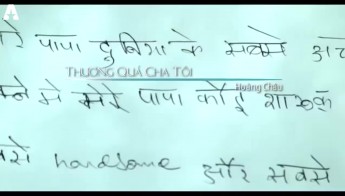 रे पापा दुनिया के सबसे अच
THƯƠNG QUÁ CHA TÔI
Hoàng Châu
मने मे मेरे पापा कोई शाहरुख
से handsome और सबसे